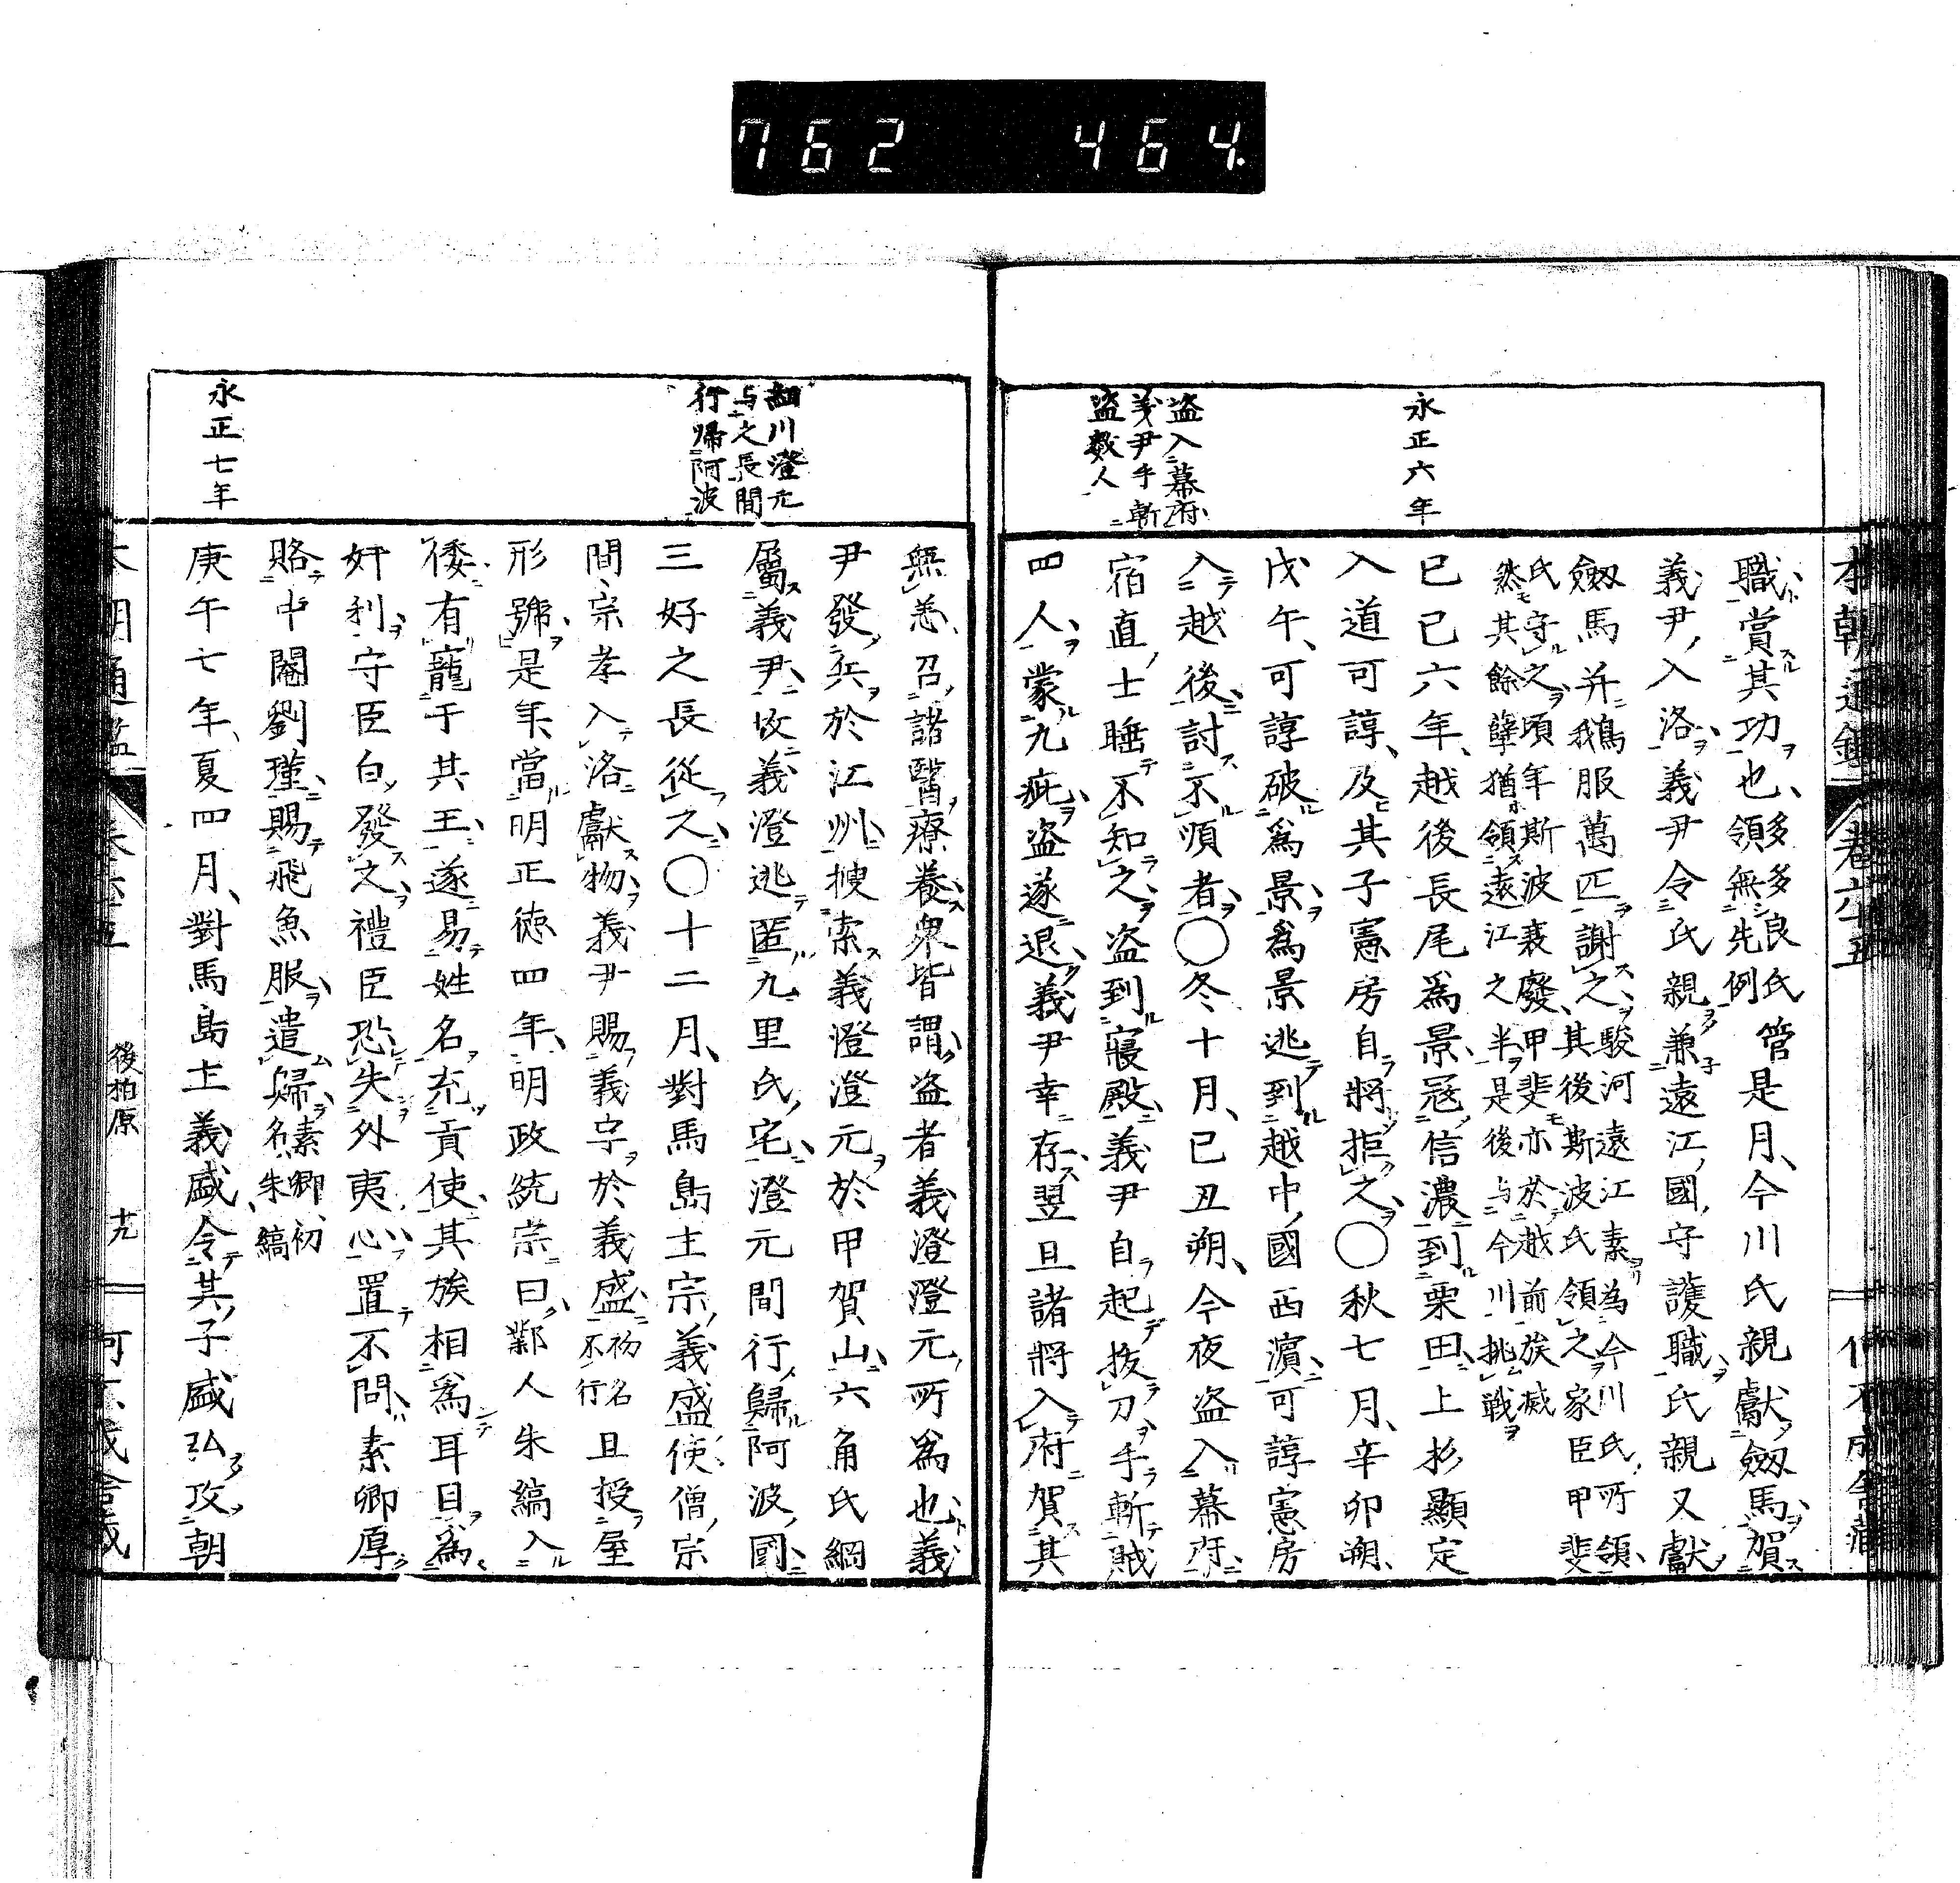 762 464
永正六年
盗入幕府
義尹手斬
盗數人
職賞其功也多多良氏
領無先例管是月今川氏親獻劔馬賀
義尹入洛義尹令氏親兼遠江國守護職氏親又獻
劔馬并鵝服萬匹謝之駿河遠江素為今川氏所領
其後斯波氏領之家臣甲斐
氏守之頃年斯波衰廢甲斐亦於越前族滅
然其餘孽猶領遠江之半是後与今川挑戦
已巳六年越後長尾爲景冦信濃到栗田上杉顯定
入道可諄及其子憲房自將拒之〇秋七月辛卯朔
戊午可諄破爲景爲景逃到越中國西濵可諄憲房
入越後討不順者〇冬十月己丑朔今夜盗入幕府
宿直士睡不知之盗到寢殿義尹自起抜刀手斬賊
四人蒙九疵盗遂退義尹幸存翌旦諸將入府賀其
細川澄元
与之長間
行帰阿波
永正七年
無恙召諸醫療養衆皆謂盗者義澄澄元所爲也義
尹發兵於江州搜索義澄澄元於甲賀山六角氏綱
屬義尹攻義澄逃匿九里氏宅澄元間行歸阿波國
三好之長從之〇十二月對馬島主宗義盛使僧宗
形號是年當明正徳四年明政統宗曰鄞人朱縞入
間宗孝入洛獻物義尹賜義字於義盛初名不行且授屋
倭有寵于其王遂易姓名充貢使其族相爲耳目爲
奸利守臣白發之禮臣恐失外夷心置不問素卿厚
賂中閹劉瑾賜飛魚服遣歸素卿初
名朱縞
庚午七年夏四月對馬島主義盛令其子盛弘攻朝
後柏原